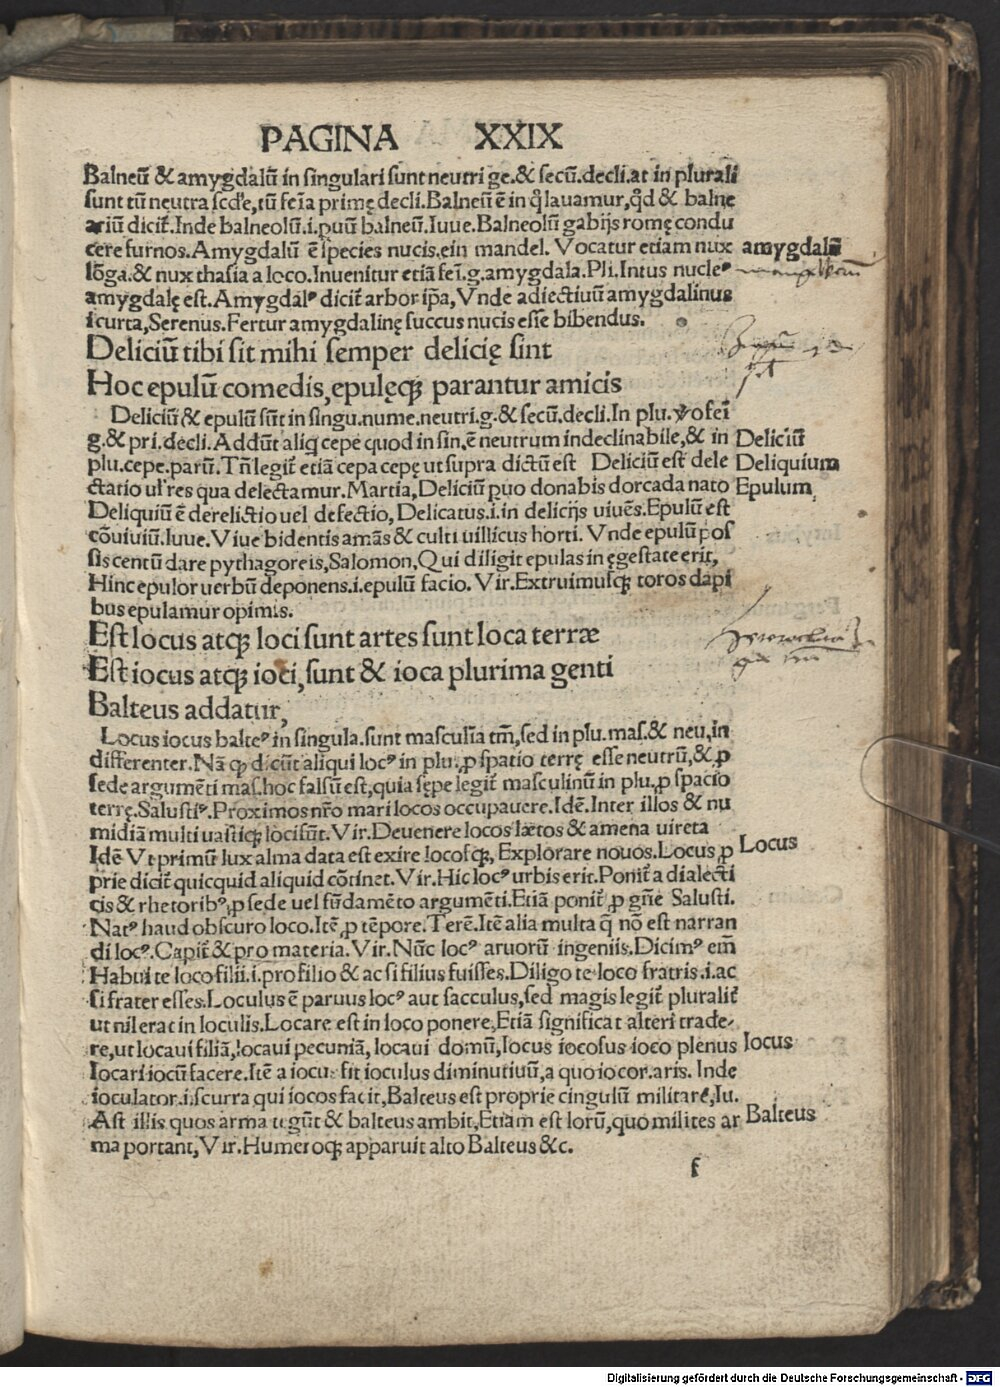 PAGINA XXIX
Balneū & amygdalū in singulari sunt neutri ge.& secū.decli.at in plurali
sunt tū neutra scd'e,tū feīa primę decli.Balneū ē in q̄ lauamur,q̄d & balne
ariū dicit̄.Inde balneolū.i.puū balneū.Iuue.Balneolū gabijs romę condu
cere furnos.Amygdalū ē species nucis.ein mandel. Vocatur etiam nux amygdalū
lōga.& nux thasia a loco.Inuenitur etiā feī.g.amygdala.Pli.Intus nucleꝰ
amygdalę est.Amygdalꝰ dicit̄ arbor ip̄a,Vnde adiectiuū amygdalinus
icurta,Serenus.Fertur amygdalinę succus nucis esse bibendus.
Deliciū tibi sit mihi semper delicię sint
Hoc epulū comedis,epulęq꜔ parantur amicis
Deliciū & epulū sūt in singu.nume.neutri.g.& secū.decli.In plu. vo feī
g.& pri.decli.Addūt aliq cepe quod in sin.ē neutrum indeclinabile,& in Deliciū
plu.cepe.parū.Tn̄ legit̄ etiā cepa cepę ut supra dictū est Deliciū est dele Deliquium
ctatio ul' res qua delectamur.Martia,Deliciū puo donabis dorcada nato Epulum,
Deliquiū ē derelictio uel defectio,Delicatus.i.in delicijs uiuēs.Epulū est
cōuiuiū.Iuue.Viue bidentis amās & culti uillicus horti. Vnde epulū pos
sis centū dare pythagoreis,Salomon,Qui diligit epulas in egestate erit,
Hinc epulor uerbū deponens.i.epulū facio. Vir.Extruimusq꜔ toros dapi
bus epulamur opimis.
Est locus atq꜔ loci sunt artes sunt loca terræ
Est iocus atq꜔ ioci,sunt & ioca plurima genti
Balteus addatur,
Locus iocus balteꝰ in singula.sunt masculīa tm̄,sed in plu.mas.& neu,in
differenter.Nā q꜔ dicūt aliqui locꝰ in plu.ꝓ spatio terrę esse neutrū,& ꝓ
sede argumēti mas.hoc falsū est,quia sępe legit̄ masculinū in plu,ꝓ spacio
terrę.Salustiꝰ.Proximos nr̄o mari locos occupauere.Idē.Inter illos & nu
midiā multi uastiq꜔ loci sūt.Vir.Deuenere locos lætos & amena uireta
Idē Vt primū lux alma data est exire locosq꜔, Explorare nouos.Locus ꝓ Locus
prie dicit̄ quicquid aliquid cōtinet.Vir.Hic locꝰ urbis erit.Ponit̄ a dialecti
cis & rhetoribꝰ,ꝓ sede uel fūdamēto argumēti.Etiā ponit̄ ꝓ gn̄e Salusti.
Natꝰ haud obscuro loco.Itē,ꝓ tēpore.Terē.Itē alia multa q̄ nō est narran
di locꝰ.Capit̄ & pro materia.Vir.Nūc locꝰ aruorū ingeniis.Dicimꝰ em̄
Habui te loco filii.i.pro filio & ac si filius fuisses.Diligo te loco fratris.i.ac
si frater esses.Loculus ē paruus locꝰ aut sacculus,sed magis legit̄ pluralit̄
ut nil erat in loculis.Locare est in loco ponere,Etiā significat alteri trade-
re,ut locaui filiā,locaui pecuniā, locaui domū,Iocus iocosus ioco plenus Iocus
Iocari iocū facere.Itē a iocus fit ioculus diminutiuū,a quo iocor.aris. Inde
ioculator.i.scurra qui iocos facit,Balteus est proprie cingulū militare,Iu.
Ast illis quos arma tegūt & balteus ambit,Etiam est lorū,quo milites ar Balteus
ma portant,Vir.Humeroq꜔ apparuit alto Balteus &c.
f
Digitalisierung gefördert durch die Deutsche Forschungsgemeinschaft - DFG